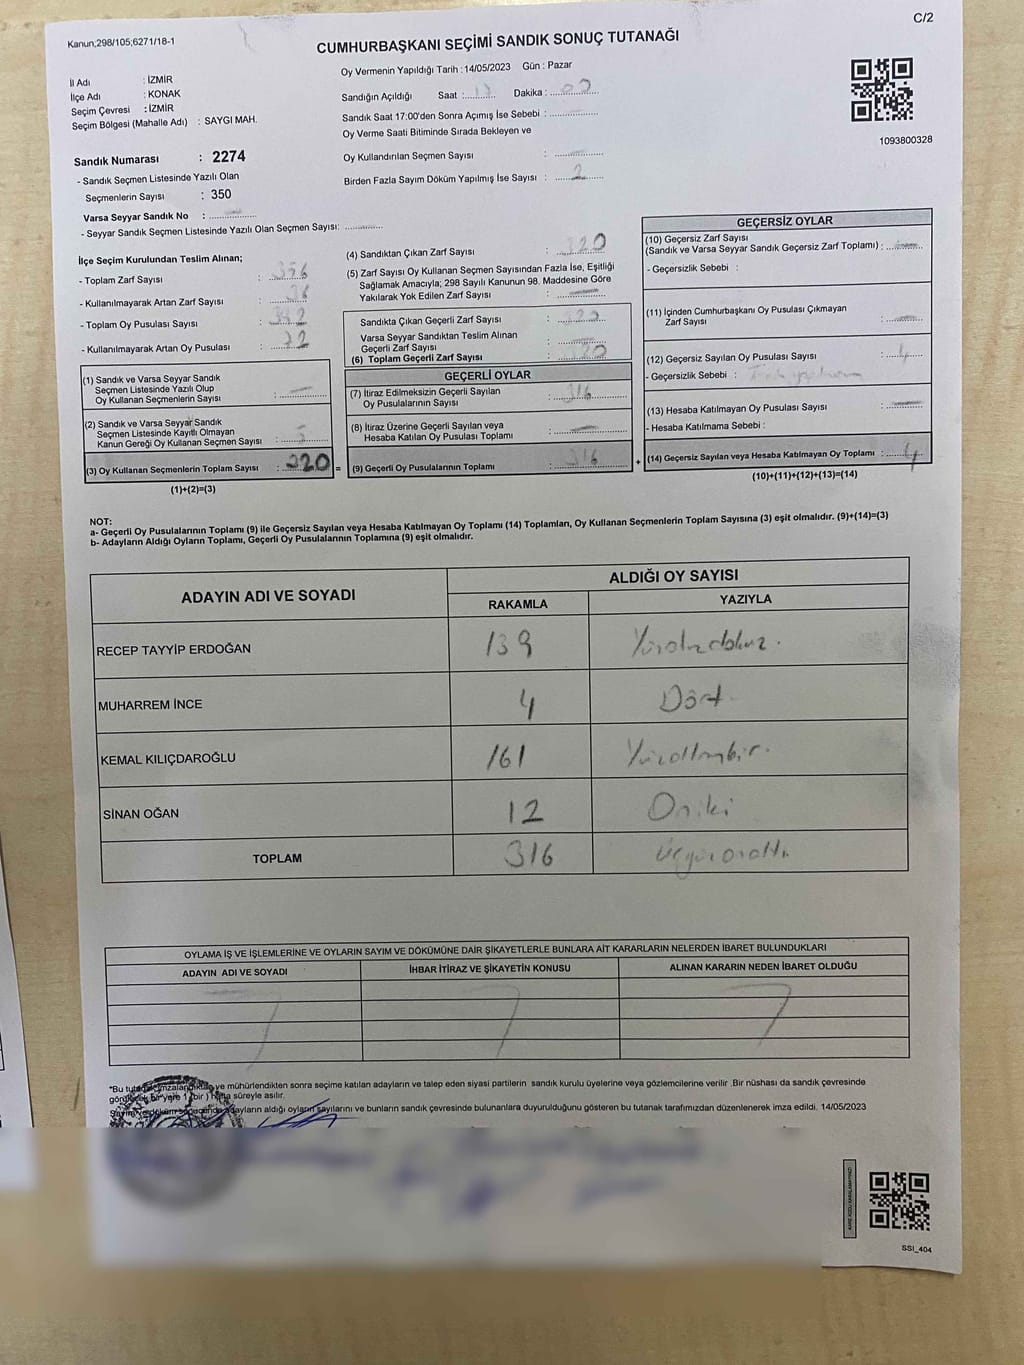 Kanun;298/105;6271/18-1
C/2
CUMHURBAŞKANI SEÇİMİ SANDIK SONUÇ TUTANAĞI
İl Adı : İZMİR
İlçe Adı : KONAK
Seçim Çevresi : İZMİR
Seçim Bölgesi (Mahalle Adı) : SAYGI MAH.
Oy Vermenin Yapıldığı Tarih :14/05/2023 Gün : Pazar
Sandığın Açıldığı Saat : Dakika :
Sandık Saat 17:00'den Sonra Açımış İse Sebebi :
Oy Verme Saati Bitiminde Sırada Bekleyen ve
Oy Kullandırılan Seçmen Sayısı :
Birden Fazla Sayım Döküm Yapılmış İse Sayısı : 2
1093800328
Sandık Numarası : 2274
- Sandık Seçmen Listesinde Yazılı Olan
Seçmenlerin Sayısı : 350
Varsa Seyyar Sandık No :
- Seyyar Sandık Seçmen Listesinde Yazılı Olan Seçmen Sayısı:
İlçe Seçim Kurulundan Teslim Alınan;
- Toplam Zarf Sayısı :
- Kullanılmayarak Artan Zarf Sayısı :
- Toplam Oy Pusulası Sayısı :
- Kullanılmayarak Artan Oy Pusulası :
(1) Sandık ve Varsa Seyyar Sandık
Seçmen Listesinde Yazılı Olup
Oy Kullanan Seçmenlerin Sayısı :
(2) Sandık ve Varsa Seyyar Sandık
Seçmen Listesinde Kayıtlı Olmayan
Kanun Gereği Oy Kullanan Seçmen Sayısı : 5
(3) Oy Kullanan Seçmenlerin Toplam Sayısı : 320 =
(1)+(2)=(3)
(4) Sandıktan Çıkan Zarf Sayısı : 320
(5) Zarf Sayısı Oy Kullanan Seçmen Sayısından Fazla İse, Eşitliği
Sağlamak Amacıyla; 298 Sayılı Kanunun 98. Maddesine Göre
Yakılarak Yok Edilen Zarf Sayısı :
Sandıkta Çıkan Geçerli Zarf Sayısı : 320
Varsa Seyyar Sandıktan Teslim Alınan
Geçerli Zarf Sayısı :
(6) Toplam Geçerli Zarf Sayısı : 320
GEÇERLİ OYLAR
(7) İtiraz Edilmeksizin Geçerli Sayılan
Oy Pusulalarının Sayısı : 316
(8) İtiraz Üzerine Geçerli Sayılan veya
Hesaba Katılan Oy Pusulası Toplamı :
(9) Geçerli Oy Pusulalarının Toplamı : 316 +
GEÇERSİZ OYLAR
(10) Geçersiz Zarf Sayısı
(Sandık ve Varsa Seyyar Sandık Geçersiz Zarf Toplamı) :
- Geçersizlik Sebebi :
(11) İçinden Cumhurbaşkanı Oy Pusulası Çıkmayan
Zarf Sayısı :
(12) Geçersiz Sayılan Oy Pusulası Sayısı : 4
- Geçersizlik Sebebi :
(13) Hesaba Katılmayan Oy Pusulası Sayısı :
- Hesaba Katılmama Sebebi :
(14) Geçersiz Sayılan veya Hesaba Katılmayan Oy Toplamı : 4
(10)+(11)+(12)+(13)=(14)
NOT:
a- Geçerli Oy Pusulalarının Toplamı (9) ile Geçersiz Sayılan veya Hesaba Katılmayan Oy Toplamı (14) Toplamları, Oy Kullanan Seçmenlerin Toplam Sayısına (3) eşit olmalıdır. (9)+(14)=(3)
b- Adayların Aldığı Oyların Toplamı, Geçerli Oy Pusulalarının Toplamına (9) eşit olmalıdır.
ADAYIN ADI VE SOYADI
ALDIĞI OY SAYISI
RAKAMLA YAZIYLA
RECEP TAYYİP ERDOĞAN 139 Yüzotuzdokuz.
MUHARREM İNCE 4 Dört
KEMAL KILIÇDAROĞLU 161 Yüzaltmışbir.
SİNAN OĞAN 12 Oniki
TOPLAM 316 Üçyüzonaltı
OYLAMA İŞ VE İŞLEMLERİNE VE OYLARIN SAYIM VE DÖKÜMÜNE DAİR ŞİKAYETLERLE BUNLARA AİT KARARLARIN NELERDEN İBARET BULUNDUKLARI
ADAYIN ADI VE SOYADI İHBAR İTİRAZ VE ŞİKAYETİN KONUSU ALINAN KARARIN NEDEN İBARET OLDUĞU
"Bu tutanak imzalandıktan ve mühürlendikten sonra seçime katılan adayların ve talep eden siyasi partilerin sandık kurulu üyelerine veya gözlemcilerine verilir .Bir nüshası da sandık çevresinde
görülecek bir yere 1 (bir ) hafta süreyle asılır.
adayların aldığı oyların sayılarını ve bunların sandık çevresinde bulunanlara duyurulduğunu gösteren bu tutanak tarafımızdan düzenlenerek imza edildi. 14/05/2023
SSI_404